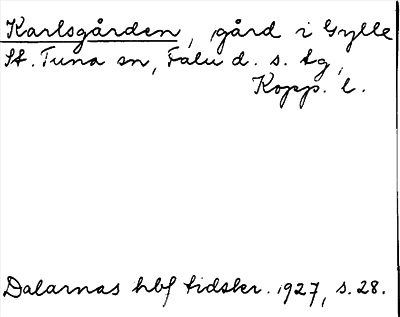 Karlsgården, gård i Gylle
St. Tuna sn, Falu d. s. tg,
Kopp. l.
Dalarnas hbf tidskr. 1927, s. 28.